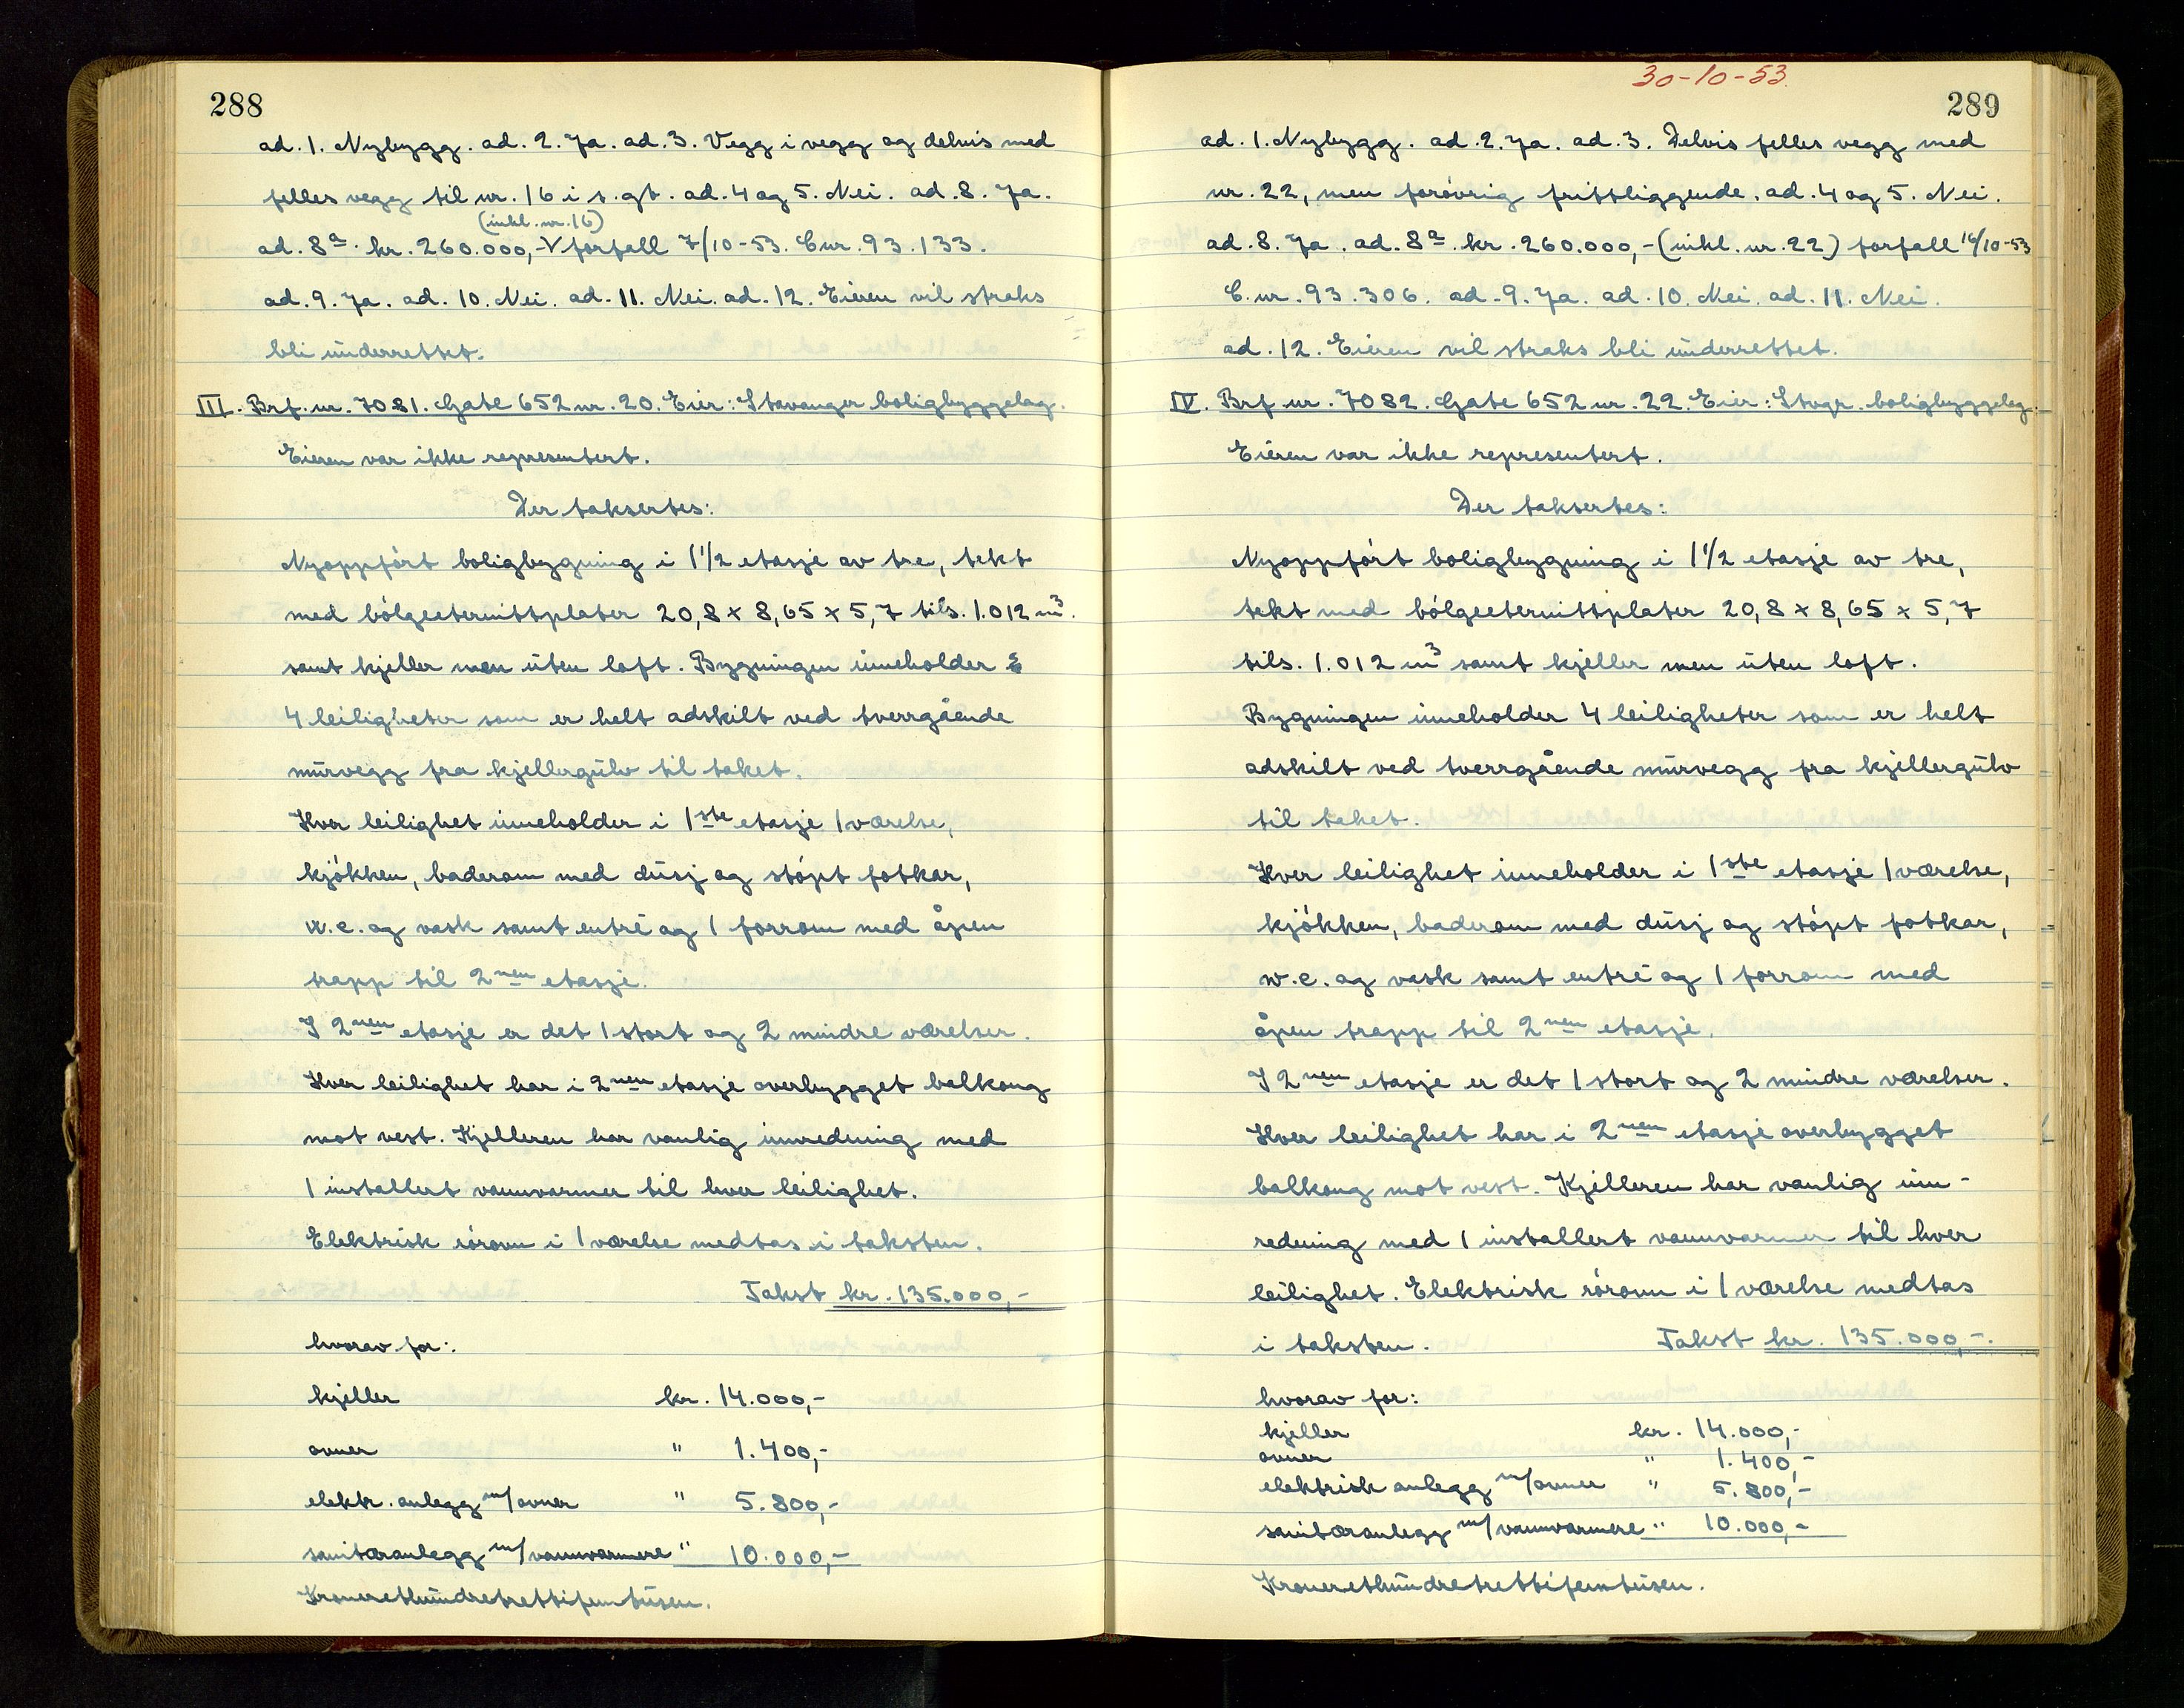 288
ad. 1. Nybygg. ad. 2. Ja. ad. 3. Vegg i vegg og delvis med
felles vegg til nr. 16 i s. gt. ad. 4 og 5. Nei. ad. 8. Ja.
(inkl. nr. 16)
ad. 8a. kr. 260.000,- V forfall 7/10-53. C nr. 93.133.
ad. 9. Ja. ad. 10. Nei. ad. 11. Nei. ad. 12. Eieren vil straks
bli underrettet.
III. Brf. nr. 7081. Gate 652 nr. 20. Eier: Stavanger boligbyggelag.
Eieren var ikke representert.
Der taksertes:
Nyoppført boligbygning i 1 1/2 etasje av tre, tekt
med bølgeeternittplater 20,8 x 8,65 x 5,7 tils. 1.012 m³.
samt kjeller men uten loft. Bygningen inneholder
4 leiligheter som er helt adskilt ved tverrgående
murvegg fra kjellergulv til taket.
Hver leilighet inneholder i 1ste etasje 1 værelse,
kjøkken, baderom med dusj og støpt fotkar,
w.c. og vask samt entré og 1 forrom med åpen
trapp til 2nen etasje.
I 2nen etasje er det 1 stort og 2 mindre værelser.
Hver leilighet har i 2nen etasje overbygget balkong
mot vest. Kjelleren har vanlig innredning med
1 installert vannvarmer til hver leilighet.
Elektrisk rørovn i 1 værelse medtas i taksten.
Takst kr. 135.000,-
hvorav for:
kjeller kr. 14.000,-
ovner " 1.400,-
elektr. anlegg m/ovner " 5.800,-
sanitæranlegg m/vannvarmere " 10.000,-
Kroneretthundretrettifemtusen.
30-10-53.
289
ad. 1. Nybygg. ad. 2. Ja. ad. 3. Delvis felles vegg med
nr. 22, men forøvrig frittliggende. ad. 4 og 5. Nei.
ad. 8. Ja. ad. 8a. kr. 260.000,- (inkl. nr. 22) forfall 14/10-53
C. nr. 93.306. ad. 9. Ja. ad. 10. Nei. ad. 11. Nei.
ad. 12. Eieren vil straks bli underrettet.
IV. Brf nr. 7082. Gate 652 nr. 22. Eier: Stvgr. boligbyggelag.
Eieren var ikke representert.
Der taksertes:
Nyoppført boligbygning i 1 1/2 etasje av tre,
tekt med bølgeeternittplater 20,8 x 8,65 x 5,7
tils. 1.012 m³ samt kjeller men uten loft.
Bygningen inneholder 4 leiligheter som er helt
adskilt ved tverrgående murvegg fra kjellergulv
til taket.
Hver leilighet inneholder i 1ste etasje 1 værelse,
kjøkken, baderom med dusj og støpt fotkar,
w.c. og vask samt entré og 1 forrom med
åpen trapp til 2nen etasje.
I 2nen etasje er det 1 stort og 2 mindre værelser.
Hver leilighet har i 2nen etasje overbygget
balkong mot vest. Kjelleren har vanlig inn-
redning med 1 installert vannvarmer til hver
leilighet. Elektrisk rørovn i 1 værelse medtas
i taksten. Takst kr. 135.000,-.
hvorav for:
kjeller kr. 14.000,-
ovner " 1.400,-
elektrisk anlegg m/ovner " 5.800,-
sanitæranlegg m/vannvarmere " 10.000,-
Kroneretthundretrettifemtusen.